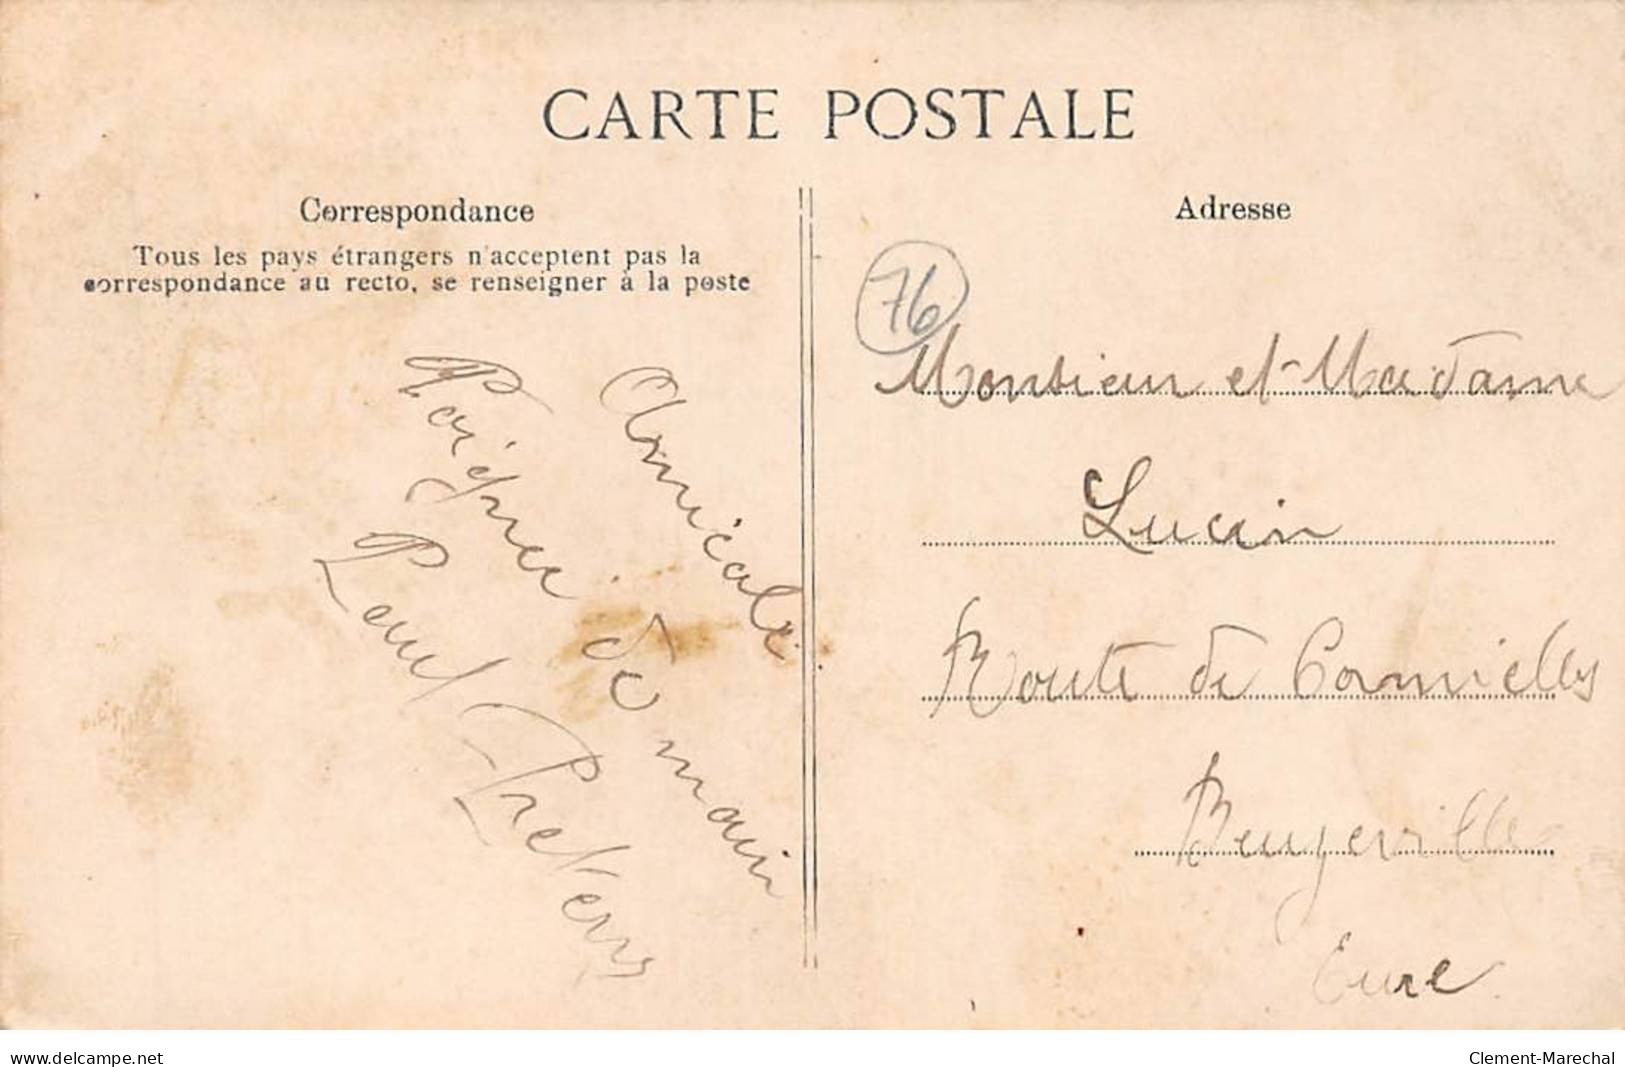 CARTE POSTALE
Correspondance
Tous les pays étrangers n'acceptent pas la
correspondance au recto, se renseigner à la poste
Amicale
Poignée de main
Paul
Adresse
76
Monsieur et Madame
Lucien
Route de Cormeilles
Beuzeville
Eure
www.delcampe.net
Clement-Marechal